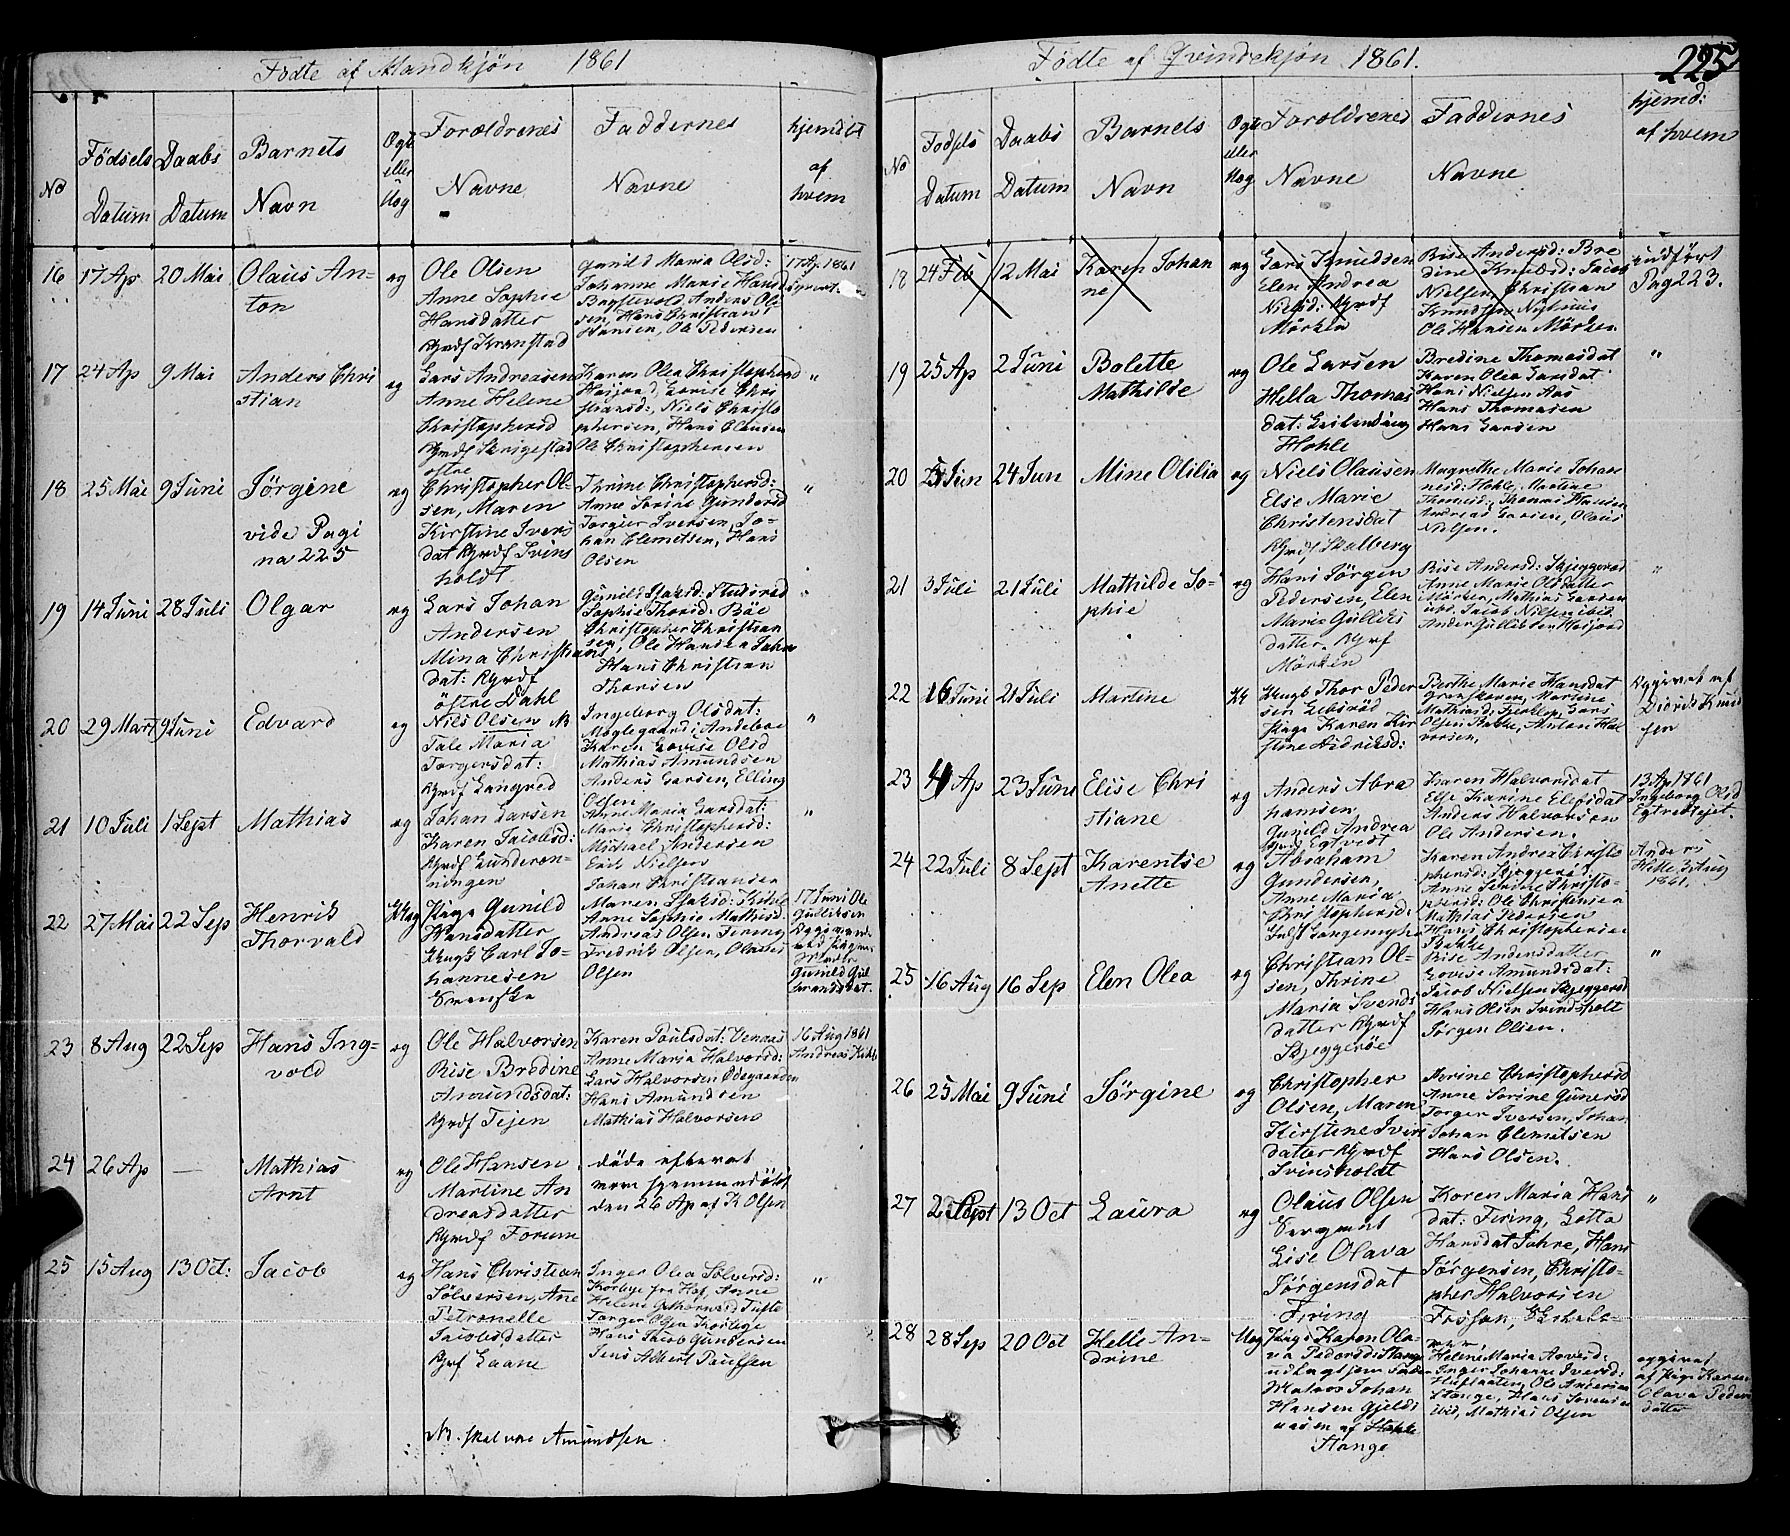 Fødte af Mandkjøn 1861
No
Fødsels
Datum
Daabs
Datum
Barnets
Navn
Ægte
eller
Uæg
Forældrenes
Navne
Faddernes
Navne
hjemdbt
af
hvem
16 17 Ap 20 Mai Olaus An-
ton
æg
Ole Olsen
Anne Sophie
Hansdatter
Gunild Maria Olsd:
Johanne Marie Hansd
Anders Ol
sen, Hans Christian
Hansen, Ole Pedersen
17 Ap. 1861
17 24 Ap 9 Mai Anders Chri
stian
æg
Lars Andreasen
Anne Helene
Christophersd
Karen Olea Christophersd
Lovise Chri
stiansd:, Niels Christo
phersen, Hans Clausen
Ole Christophersen
"
18 25 Mai 9 Juni Jørgine
vide Pagi
na 225
æg
Christopher Ol-
sen, Maren
Kirstine Ivers
dat Grdf Svins
holdt
Thrine Christophersd:
Anne Sorine Gundersd
Torgier Iversen, Jo-
han Clemetsen, Hans
Olsen
"
19 14 Juni 28 Juli Olgar
æg
Lars Johan
Andersen
Mina Christians
dat: Grdf
østre Dahl
Sophie Thorsd: Bøe
Christopher Christian
sen, Ole Hansen
Hans Christian
Thorsen
"
20 29 Mart 9 Juni Edvard
æg
Nils Olsen NB
Tale Maria
Torgersdat:
Grdf Langred
Ingeborg Olsdat:
Møglegaard i Andeboe
Karen Lovise Olsd
Mathias Amundsen
Anders Larsen, Elling
Olsen
"
21 10 Juli 1 Sept Mathias
æg
Johan Larsen
Karen Jacobsd:
Anne Maria Larsdat:
Maria Christophersd:
Michael Andersen
Erik Nielsen
Johan Christiansen
"
22 27 Mai 22 Sep Henrik
Thorvald
Uæg
Pige Gunild
Hansdatter
Ungk Carl Jo-
hannesen
Svenske
Maren Isaksd:
Anne Sophie Mathisd
Andreas Olsen Firing
Fredrik Olsen, Olaus
Olsen
17 Juni Ole
Gulliksen
Gunild Gul
brandsdat.
23 8 Aug 22 Sep Hans Ing-
vold
æg
Ole Halvorsen
Rise Bredine
Amundsdat:
Grdf Tejen
Karen Poulsdat: Vennæs
Anne Maria Halvorsd:
Lars Halvorsen Ødegaarden
Hans Amundsen
Mathias Halvorsen
16 Aug 1861
Andreas
24 26 Ap — Mathias
Arnt
æg
Ole Hansen
Martine An
dreasdatter
Grdf Forum
døde efter at
være hjemmedøbt
den 26 Ap af K Olsen
25 15 Aug 13 Oct: Jacob
æg
Hans Christian
Sølversen, Ane
Petronelle
Jacobsdatter
Grdf Laane
Inger Olea Sølversd:
fra Hof, Anne
Helene
Torger Olsen
Hans Jacob Gundersen
Jens Albert Paulsen
"
NB. skal være Amundsen.
Fødte af Qvindekjøn 1861.
225
No
Fødsels
Datum
Daabs
Datum
Barnets
Navn
Ægte
eller
Uæg
Forældrenes
Navne
Faddernes
Navne
hjemd:
af hvem
18 24 Feb 12 Mai Karen Johan
ne
æg
Lars Knudsen
Elen Andrea
Nielsd: Grdf
Mørken
Rise Andersd: Bre
dine Knudsd: Jacob
Nielsen, Christian
Knudsen
Ole Hansen Mørken
indført
Pag 223.
19 25 Ap 2 Juni Bolette
Mathilde
æg
Ole Larsen
Hella Thomas
dat:
Hohle
Bredine Thomasdat
Karen Olea Larsdat
Hans Nielsen Aas
Hans Thomasen
Hans Larsen
"
20 5 Jun 24 Jun Mine Otilia
æg
Niels Olausen
Else Marie
Christensdat
Grdf Skalberg
Magrethe Marie Johan
nesd: Hohle, Martine
Thomasd:, Thomas Hansen
Andreas Larsen, Olaus
Nilsen.
21 3 Juli 21 Juli Mathilde So-
phie
æg
Hans Jørgen
Pedersen, Elen
Marie Gulliks
datter. Grdf
Mørken
Rise Andersd: Skjeggerød
Anne Marie Olsdatter
Mørken, Mathias Larsen
ibid, Jacob Nilsen ibid
"
22 16 Juni 21 Juli Martine
Uæ
Ungk Thor Peder
sen
Pige Karen Kir
stine Didriksd:
Berthe Marie Hansdat
Martine
Mathiasd:
Olsen Bakke, Anton Hal
vorsen.
Opgivet af
Didrik Knud
sen
23 4 Ap 23 Juni Elise Chri
stiane
æg
Anders Abra
hamsen
Gunild Andrea
Karen Halvorsdat
Else Karine Elefsdat
Anders Halvorsen
Ole Andersen.
13 Ap 1861
Ingeborg Olsd
24 22 Juli 8 Sept Karentse
Anette
æg
Abraham
Gundersen,
Anne Maria
Christophersd:
Karen Andrea Christo
phersd: Skjeggerød
Anne Serine Christo-
phersd: Ole Christensen
Mathias Pedersen
Hans Christophersen
Bakke
Anders
3 Aug
1861.
25 16 Aug 16 Sep Elen Olea
æg
Christian Ol-
sen, Thrine
Maria Svends
datter Grdf
Skjeggerøe
Rise Andersdatter
Lovise Amundsdat:
Jacob Nielsen Skjeggerød
Hans Olsen Svindsholt
Jørgen Olsen.
"
26 25 Mai 9 Juni Jørgine
æg
Christopher
Olsen, Maren
Kirstine Ivers
datter Grdf
Svinsholdt
Thrine Christophersd
Anne Sorine Gunersd
Torger Iversen, Johan
Johan Clemetsen
Hans Olsen.
27 2 Sept 13 Oct Laura
æg
Olaus Olsen
Sergeant
Lise Olava
Jørgensdat
Firing
Karen Maria Hans
dat: Firing, Lotta
Hansdat Suhre, Hans
Jørgensen, Christo-
pher Halvorsen
"
28 28 Sep 20 Oct Helle An-
drine
Uæg
Pige Karen Ola-
va Pedersd: Stange
Matros Johan
Hansen Gjelds
aasen af
Stange
Helene Maria
Inger Johanne Iversd:
Ole Andersen
Stange, Hans Sørensen
ibid, Mathias Olsen
opgivet
af Pige Karen
Olava Peders
datter